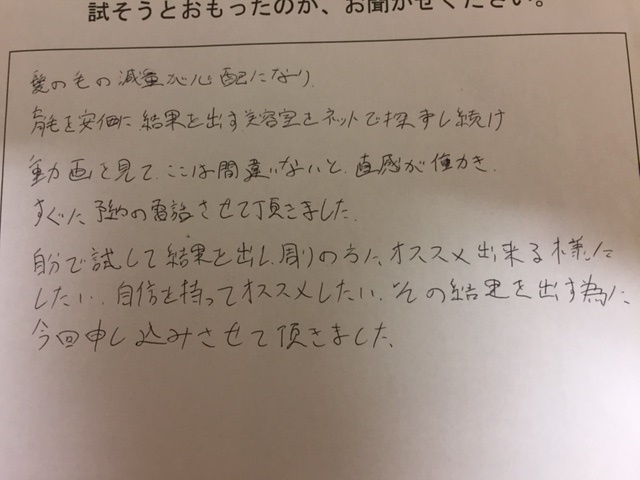 試そうとおもったのか、お聞かせください。
髪の毛の減量が心配になり
育毛を安価に結果を出す美容室をネットで探し続け
動画を見て、ここは間違いないと、直感が働き、
すぐに予約の電話させて頂きました。
自分で試して結果を出し、周りの方に、オススメ出来る様に
したい、自信を持ってオススメしたい、その結果を出す為に
今回申し込みさせて頂きました。